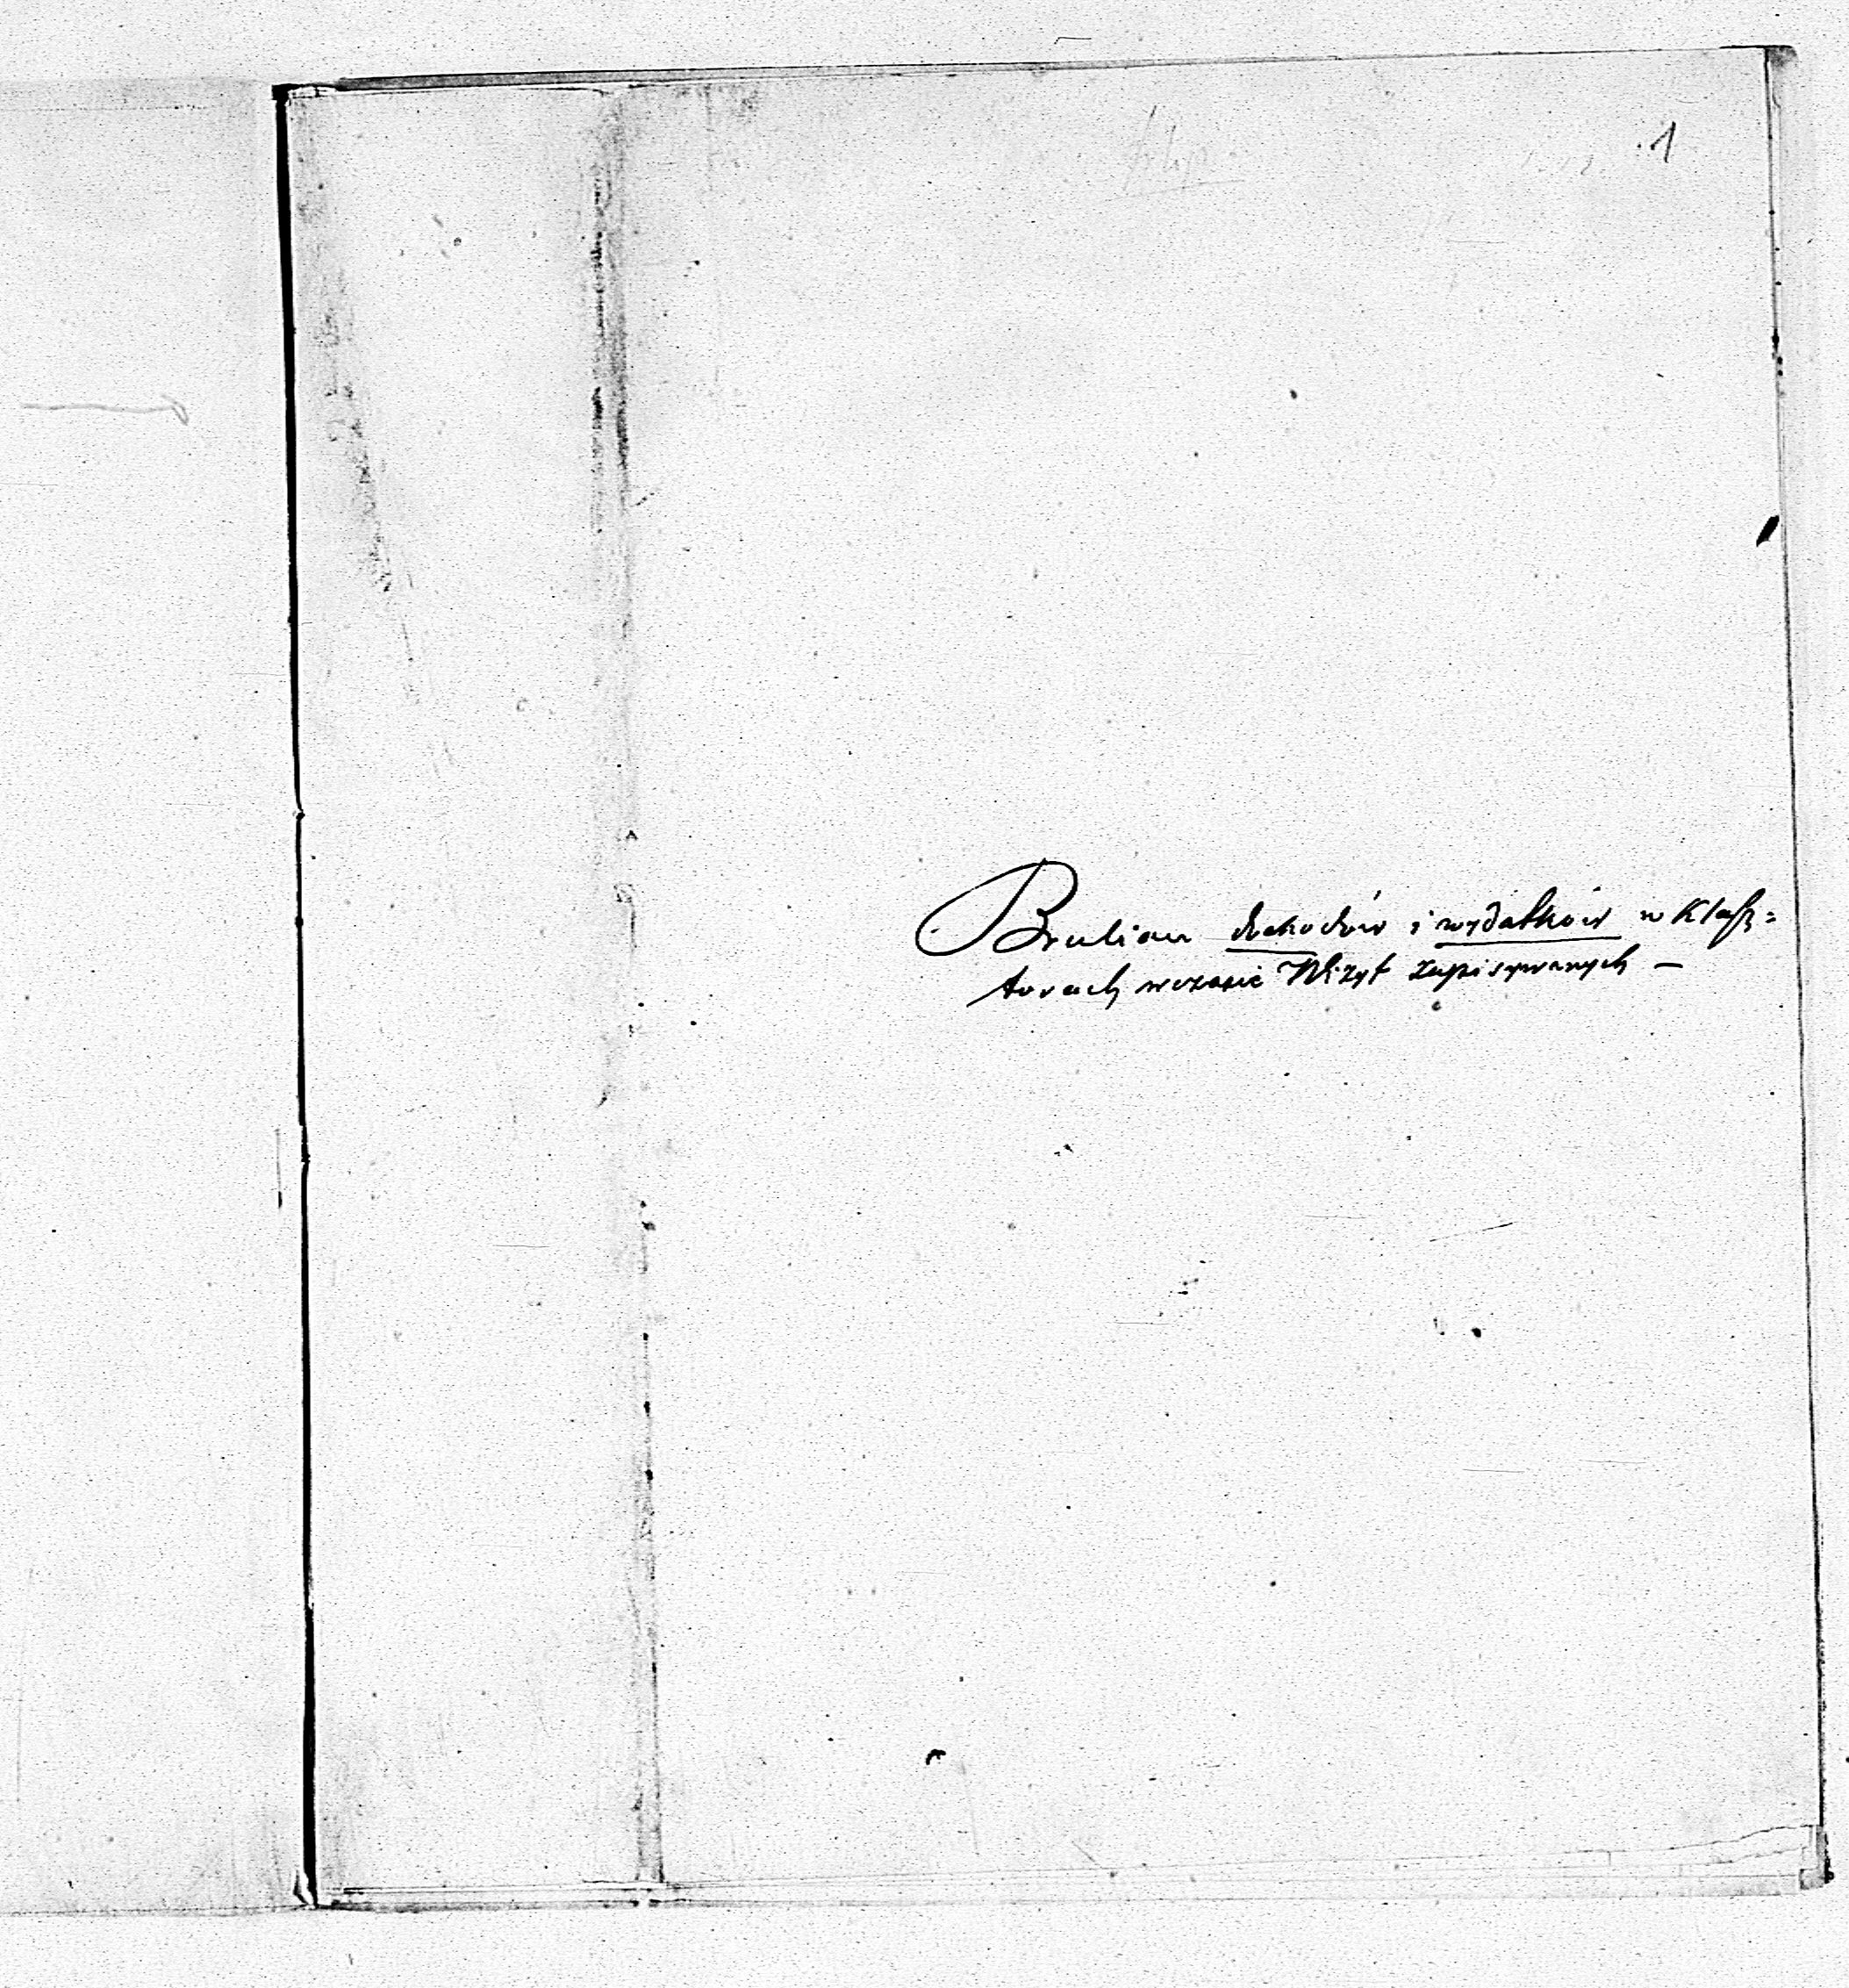 1
Brulion dochodów i wydatków w Klasz=
torach w czasie Wizyt zapisywanych —